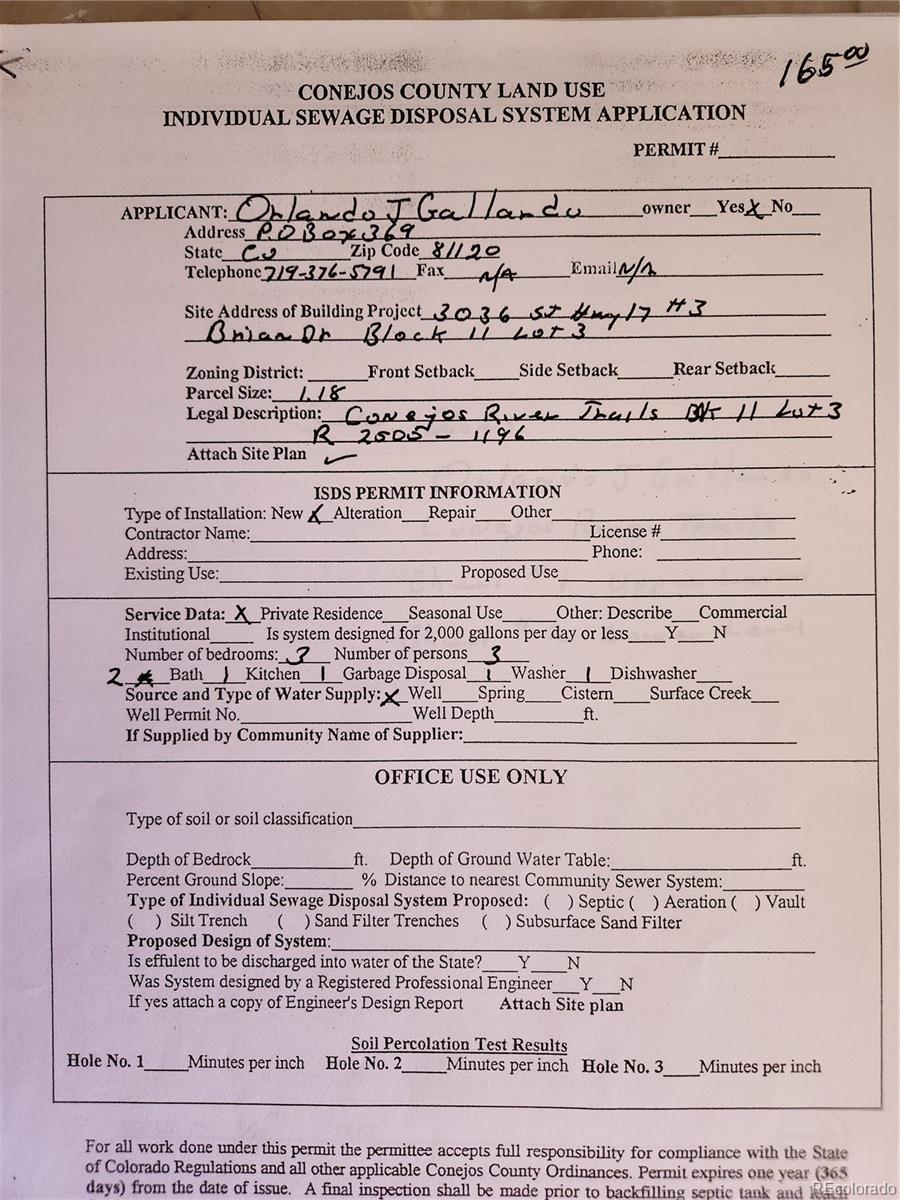 165 00
CONEJOS COUNTY LAND USE
INDIVIDUAL SEWAGE DISPOSAL SYSTEM APPLICATION
PERMIT #__________
APPLICANT: Orlando J Gallardo owner___Yes X No___
Address P.O Box 369
State CO Zip Code 81120
Telephone 719-376-5791 Fax N/A Email N/A
Site Address of Building Project 3036 St Hwy 17 #3
Brian Dr Block 11 Lot 3
Zoning District:______Front Setback_____Side Setback______Rear Setback______
Parcel Size: 1.18
Legal Description: Conejos River Trails Blk 11 Lot 3
R 2505 - 1196
Attach Site Plan ✓
ISDS PERMIT INFORMATION
Type of Installation: New X Alteration___Repair___Other__________
Contractor Name:__________License #__________
Address:__________Phone:__________
Existing Use:__________Proposed Use__________
Service Data: X Private Residence___Seasonal Use_____Other: Describe___Commercial
Institutional_____Is system designed for 2,000 gallons per day or less____Y____N
Number of bedrooms: 3 Number of persons 3
2 Bath 1 Kitchen 1 Garbage Disposal 1 Washer 1 Dishwasher____
Source and Type of Water Supply: X Well____Spring____Cistern____Surface Creek___
Well Permit No.__________Well Depth__________ft.
If Supplied by Community Name of Supplier:__________
OFFICE USE ONLY
Type of soil or soil classification__________
Depth of Bedrock__________ft. Depth of Ground Water Table:__________ft.
Percent Ground Slope:_______ % Distance to nearest Community Sewer System:________
Type of Individual Sewage Disposal System Proposed: ( ) Septic ( ) Aeration ( ) Vault
( ) Silt Trench ( ) Sand Filter Trenches ( ) Subsurface Sand Filter
Proposed Design of System:__________
Is effulent to be discharged into water of the State?____Y____N
Was System designed by a Registered Professional Engineer___Y___N
If yes attach a copy of Engineer's Design Report Attach Site plan
Soil Percolation Test Results
Hole No. 1_____Minutes per inch Hole No. 2_____Minutes per inch Hole No. 3____Minutes per inch
For all work done under this permit the permittee accepts full responsibility for compliance with the State
of Colorado Regulations and all other applicable Conejos County Ordinances. Permit expires one year (365
days) from the date of issue. A final inspection shall be made prior to backfilling septic tank and leach
REcolorado